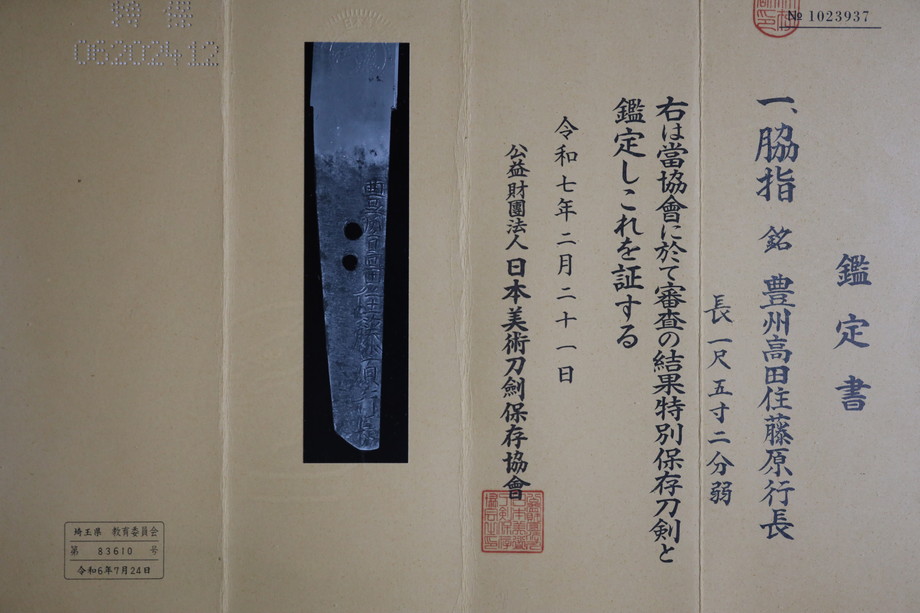 № 1023937
鑑定書
一、脇指 銘 豊州高田住藤原行長
長一尺五寸二分弱
右は當協會に於て審査の結果特別保存刀剣と
鑑定しこれを証する
令和七年二月二十一日
公益財團法人 日本美術刀劍保存協會
豊州高田住藤原行長
06202412
埼玉県 教育委員会
第 83610 号
令和6年7月24日